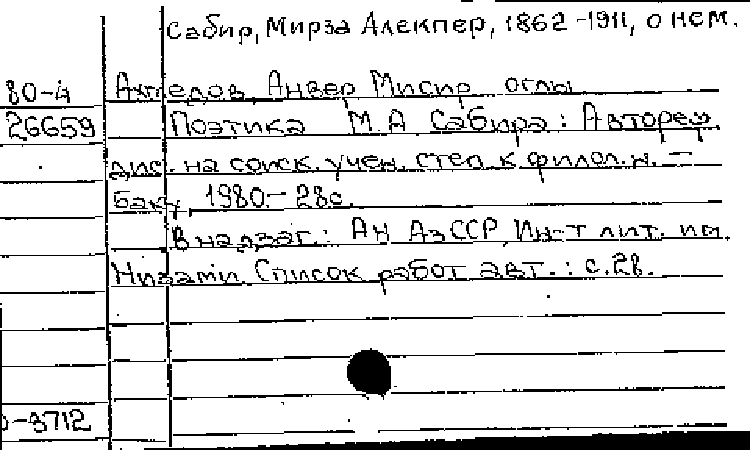 Сабир, Мирза Алекпер, 1862-1911, о нем.
80-4 Ахмедов, Анвер Мисир оглы
26659 Поэтика М.А. Сабира: Автореф.
дис. на соиск. учен. степ. к. филол. н. -
Баку, 1980.- 28с.
В надзаг.: АН АзССР, Ин-т лит. им.
Низами. Список работ авт.: с.28.
-3712